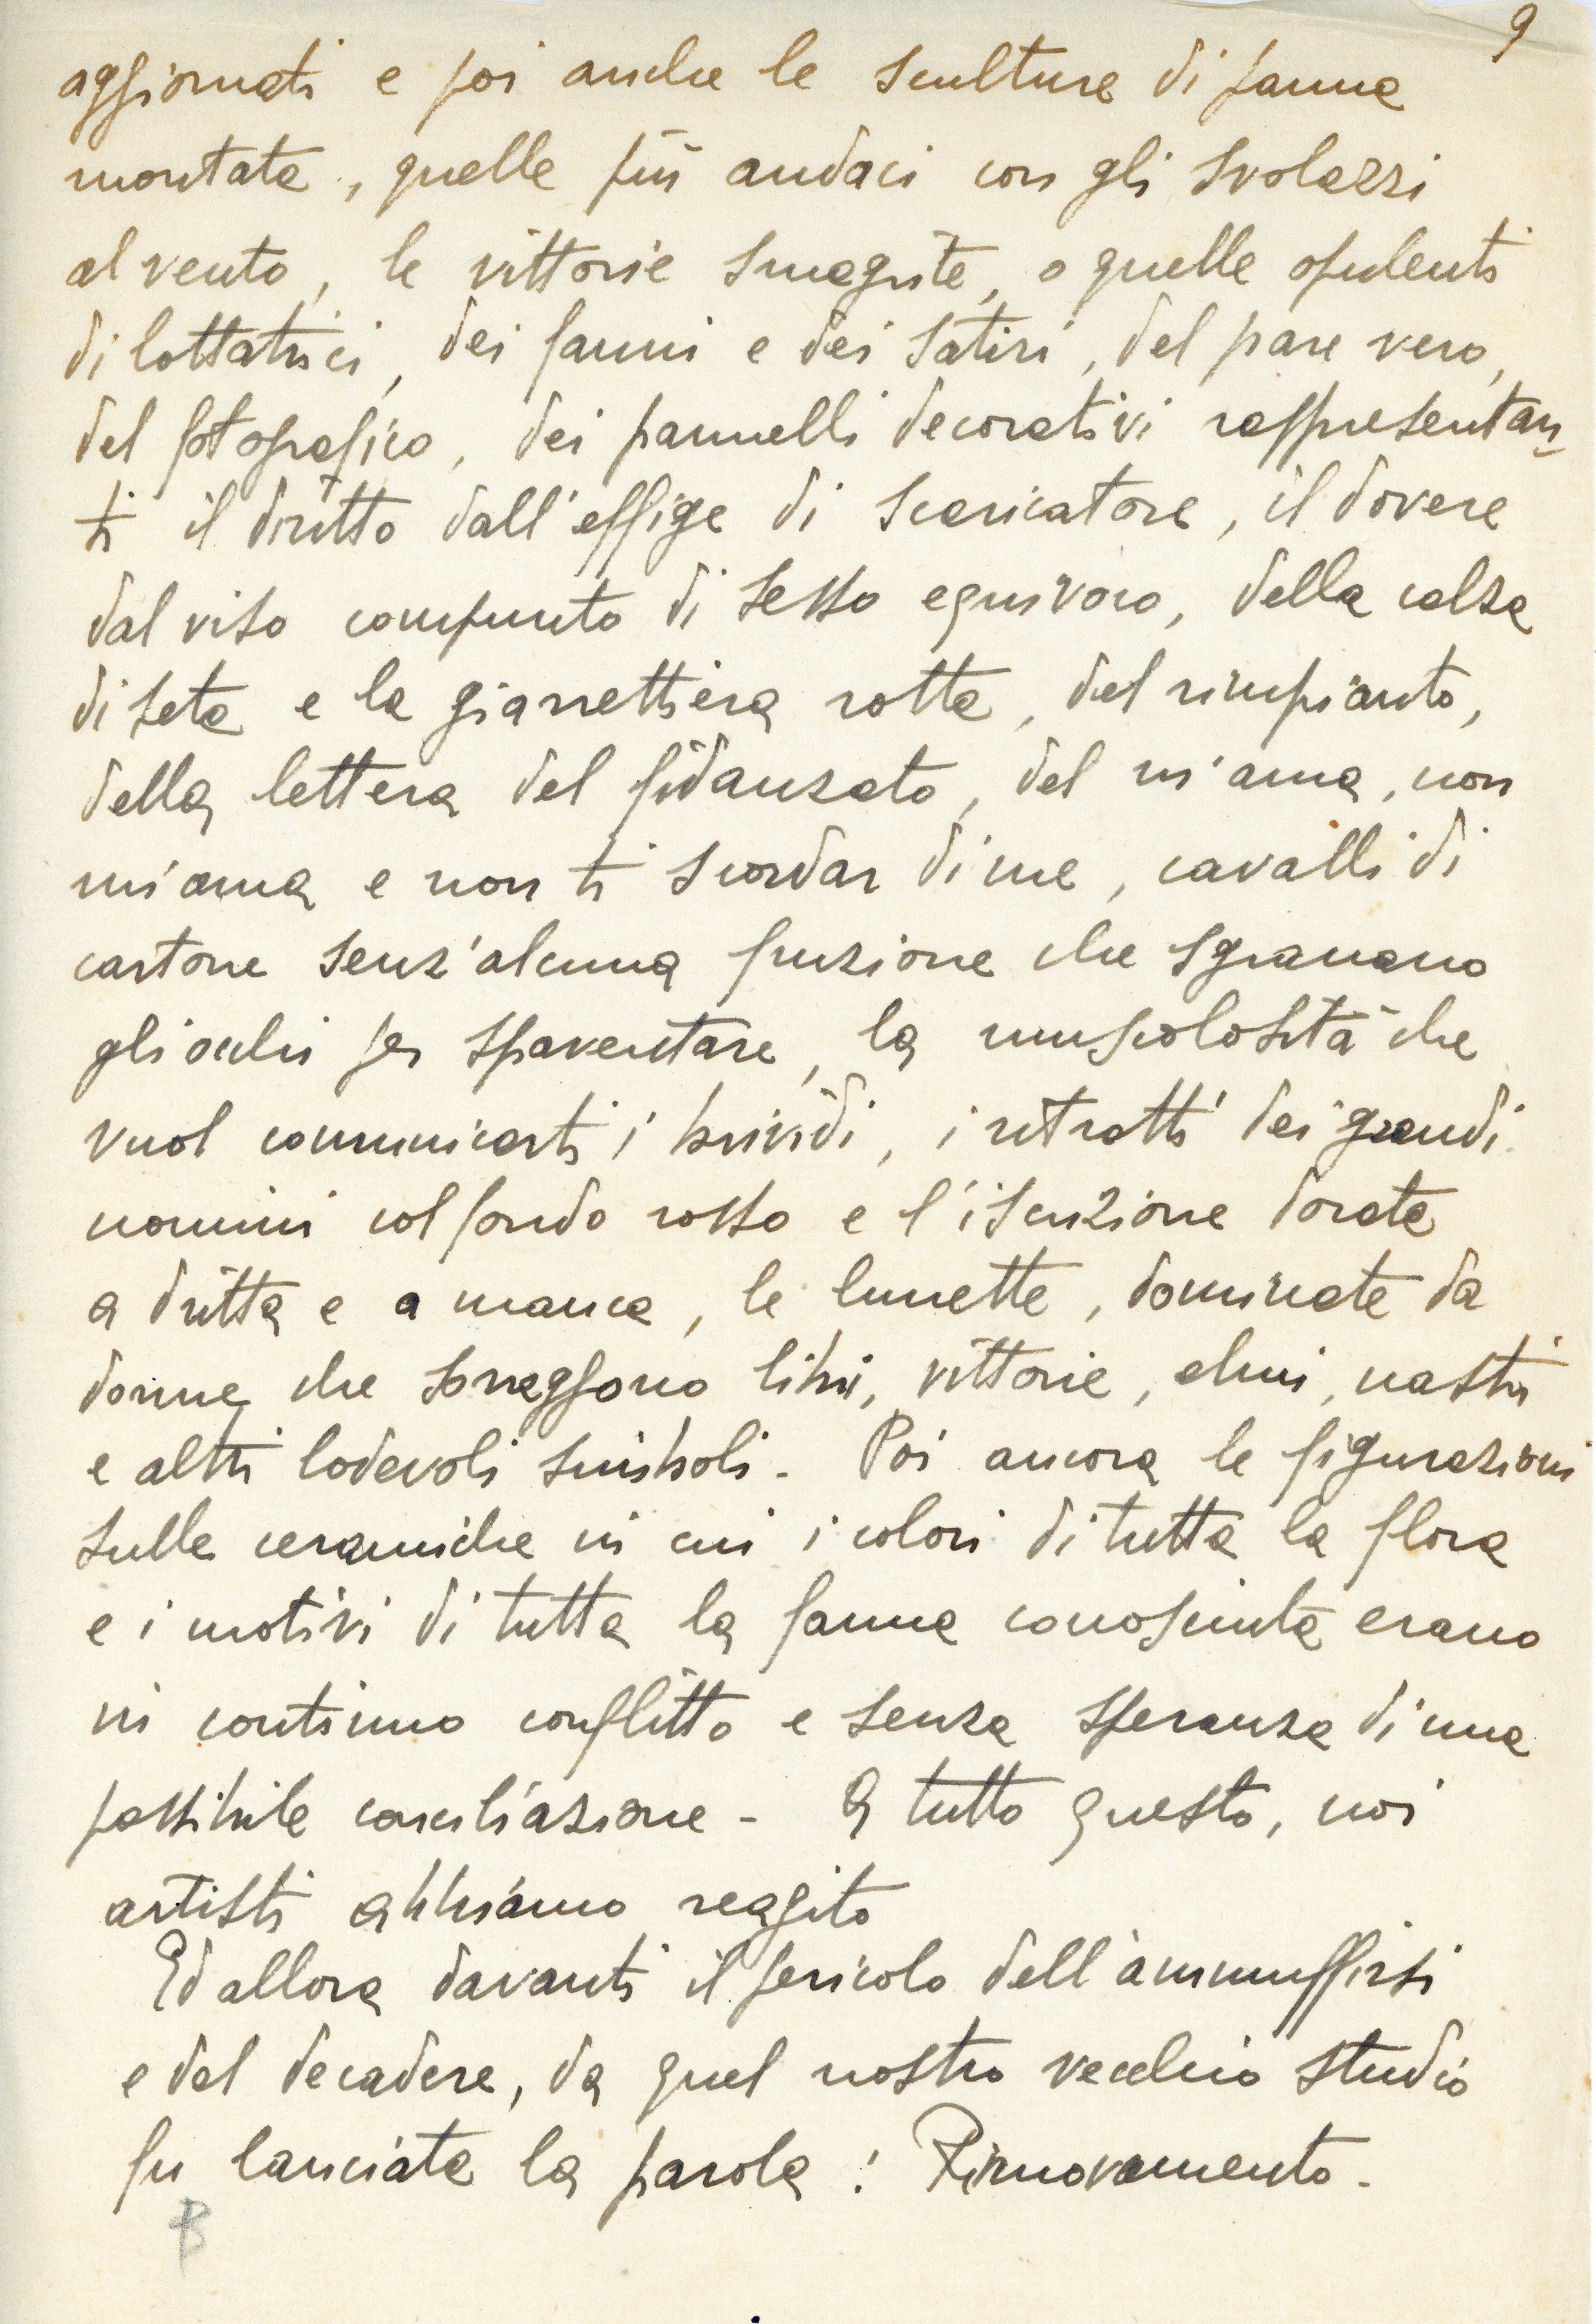 9
aggiornati e poi anche le sculture di panna
montata, quelle più audaci con gli svolazzi
al vento, le vittorie smagrite, o quelle opulenti
di lottatrici, dei fauni e dei satiri, del pare vero,
del fotografico, dei pannelli decorativi rappresentan-
ti il diritto dall'effige di scaricatore, il dovere
dal viso compunto di sesso equivoco, della calza
di seta e la giarrettiera rotta, del rimpianto,
della lettera del fidanzato, del m'ama, non
m'ama e non ti scordar di me, cavalli di
cartone senz'alcuna funzione che sgranano
gli occhi per spaventare, la muscolosità che
vuol comunicarti i brividi, i ritratti dei grandi
uomini col fondo rosso e l'iscrizione dorata
a dritta e a manca, le lunette, dominate da
donne che sorreggono libri, vittorie, elmi, nastri
e altri lodevoli simboli. Poi ancora le figurazioni
sulle ceramiche in cui i colori di tutta la flora
e i motivi di tutta la fauna conosciuta erano
in continuo conflitto e senza speranza di una
possibile conciliazione - A tutto questo, noi
artisti abbiamo reagito
Ed allora davanti il pericolo dell'ammuffirsi
e del decadere, da quel nostro vecchio studio
fu lanciata la parola: Rinnovamento.
B